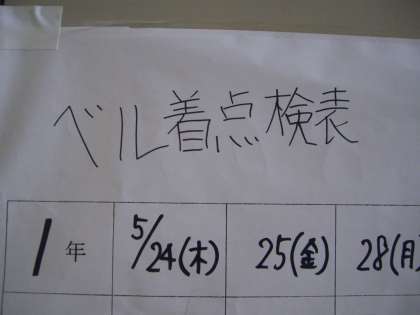 ベル着点検表
1年 5/24(木) 25(金) 28(月